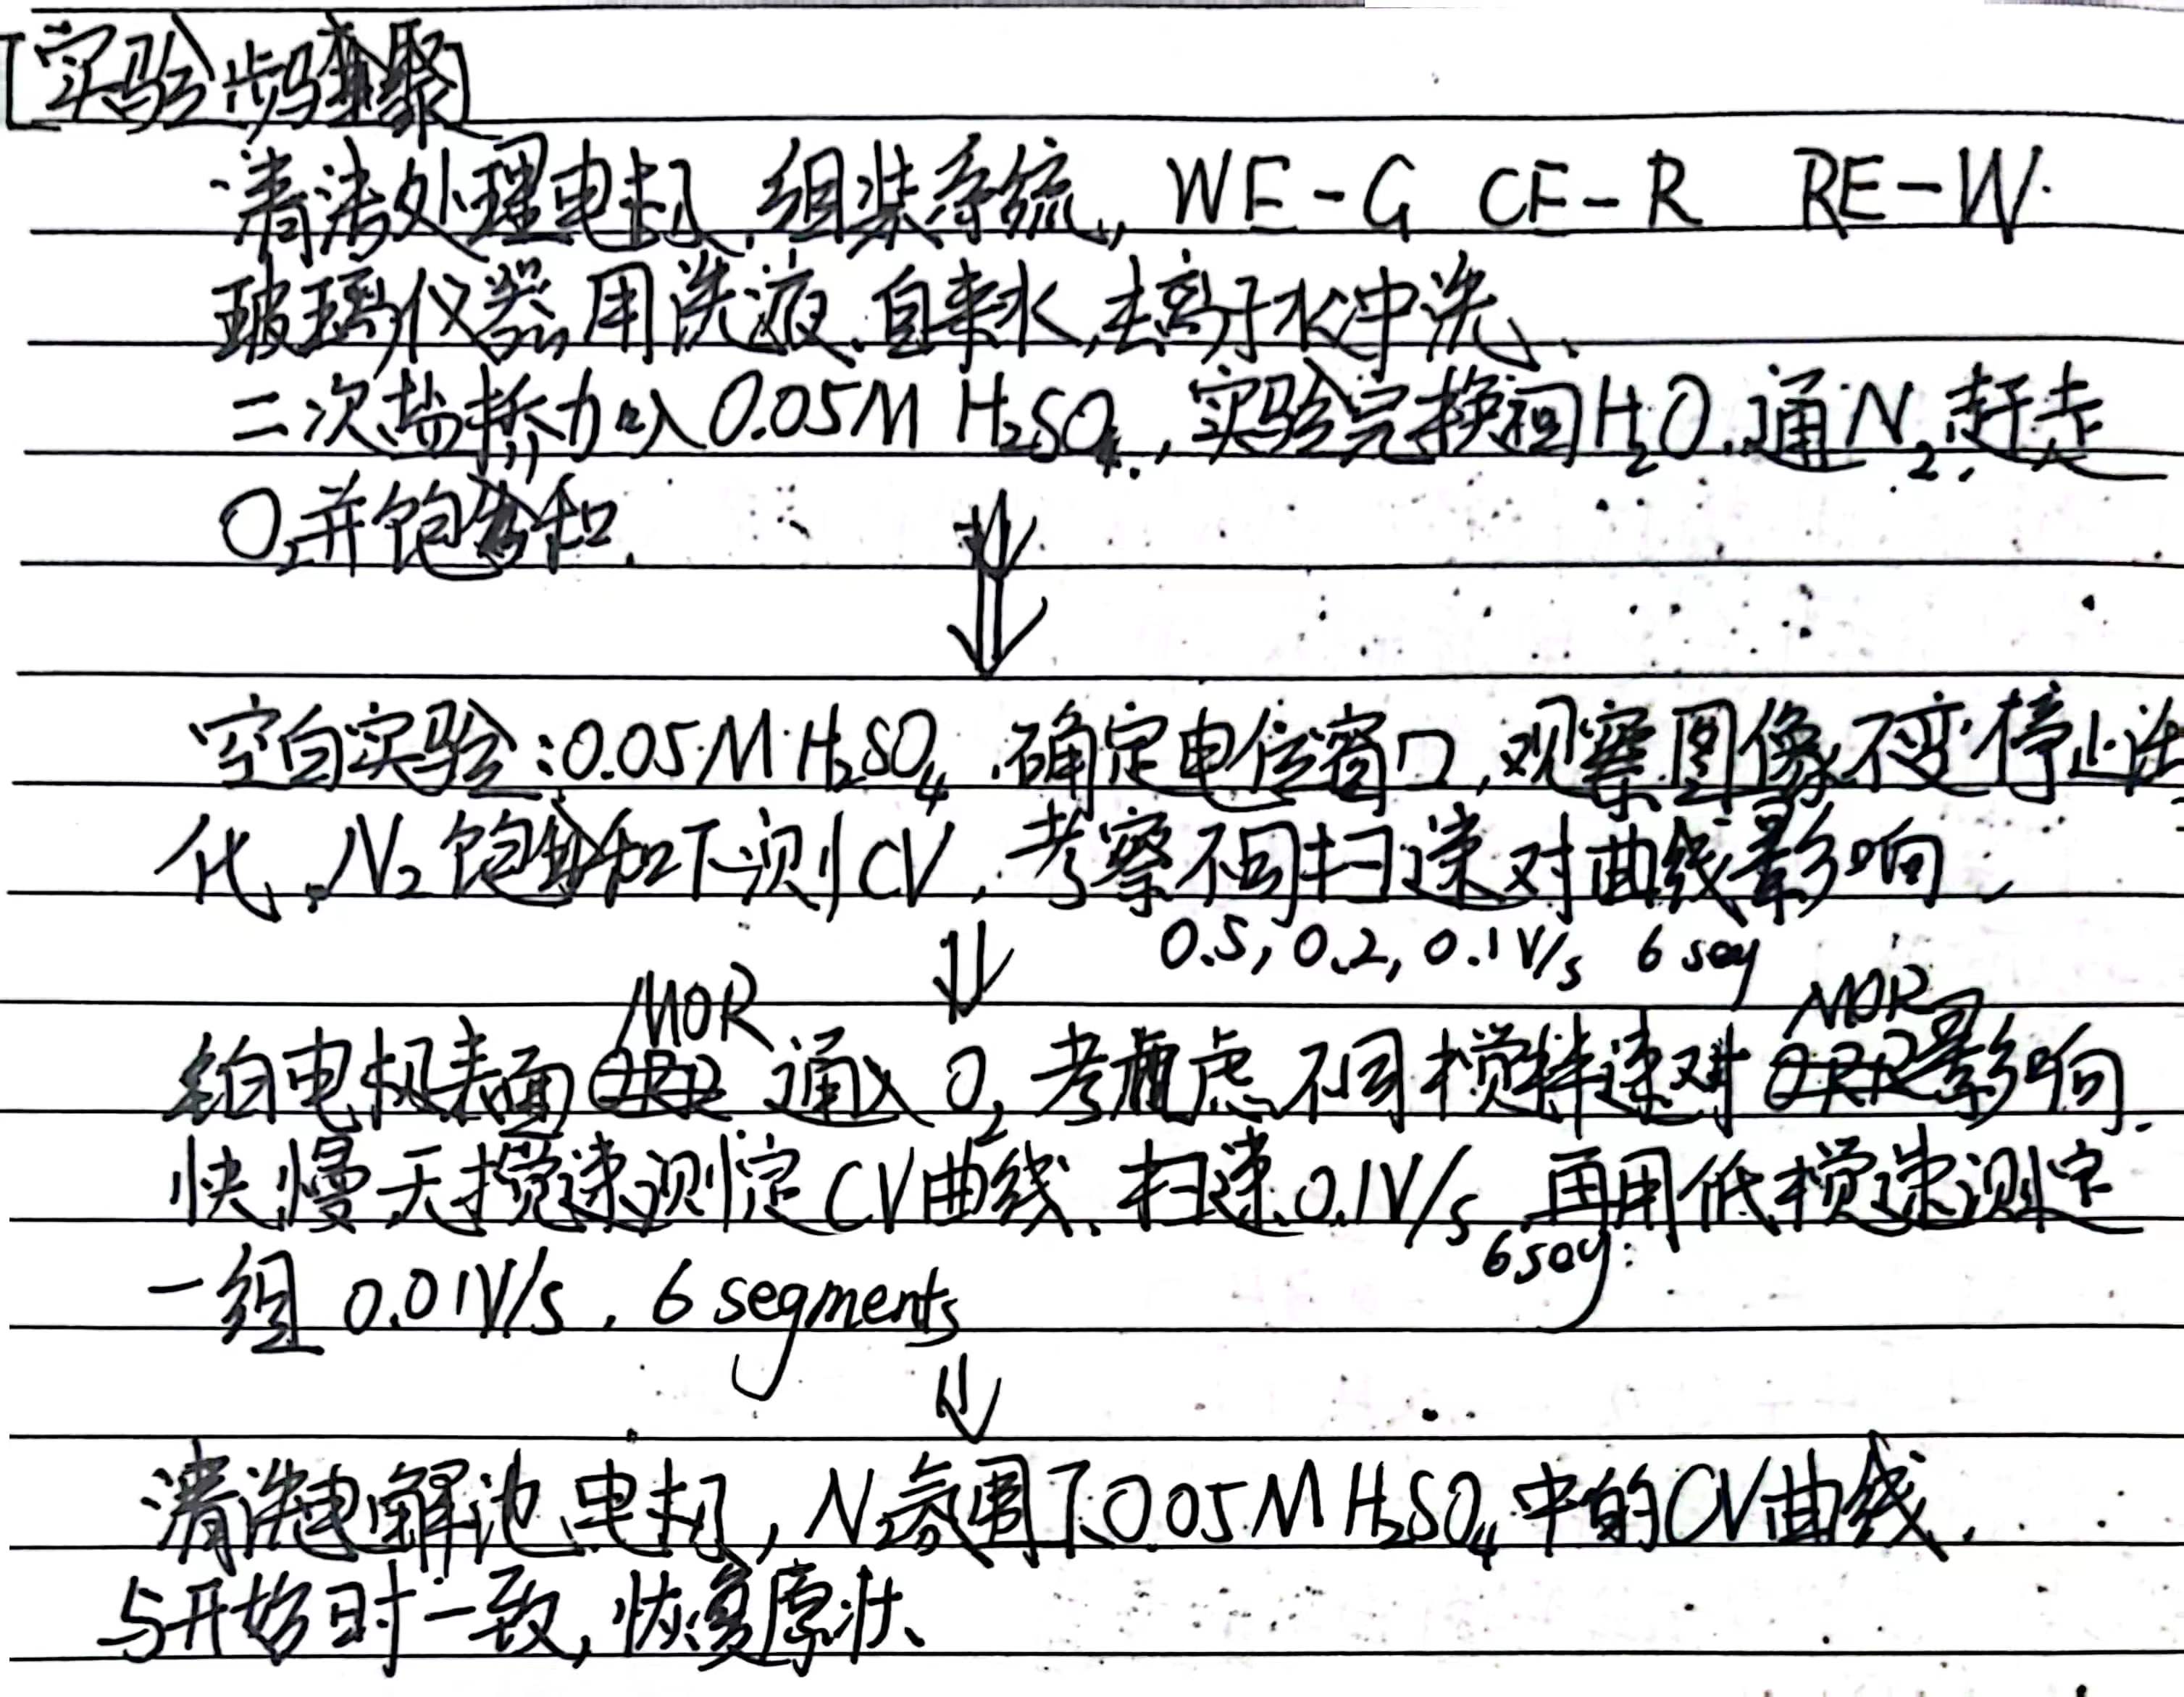 [实验步骤]
清洁处理电极,组装系统, WE-G CE-R RE-W.
玻璃仪器用洗液、自来水,去离子水冲洗、
二次盐桥加入0.05M H₂SO₄,实验完换回H₂O.通N₂,赶走
O₂并饱和.
⇓
空白实验:0.05M H₂SO₄.确定电位窗口,观察图像不变停止活
化、N₂饱和下测CV,考察不同扫速对曲线影响.
⇓ 0.5, 0.2, 0.1V/s 6 seg
MOR MOR
铂电极表面 通入O₂ 考虑不同搅拌速对 影响.
快慢无搅速测定CV曲线.扫速0.1V/s 再用低搅速测定
6seg.
一组 0.01V/s, 6 segments
⇓
清洗电解池、电极,N₂氛围下0.05M H₂SO₄中的CV曲线,
与开始时一致,恢复原状